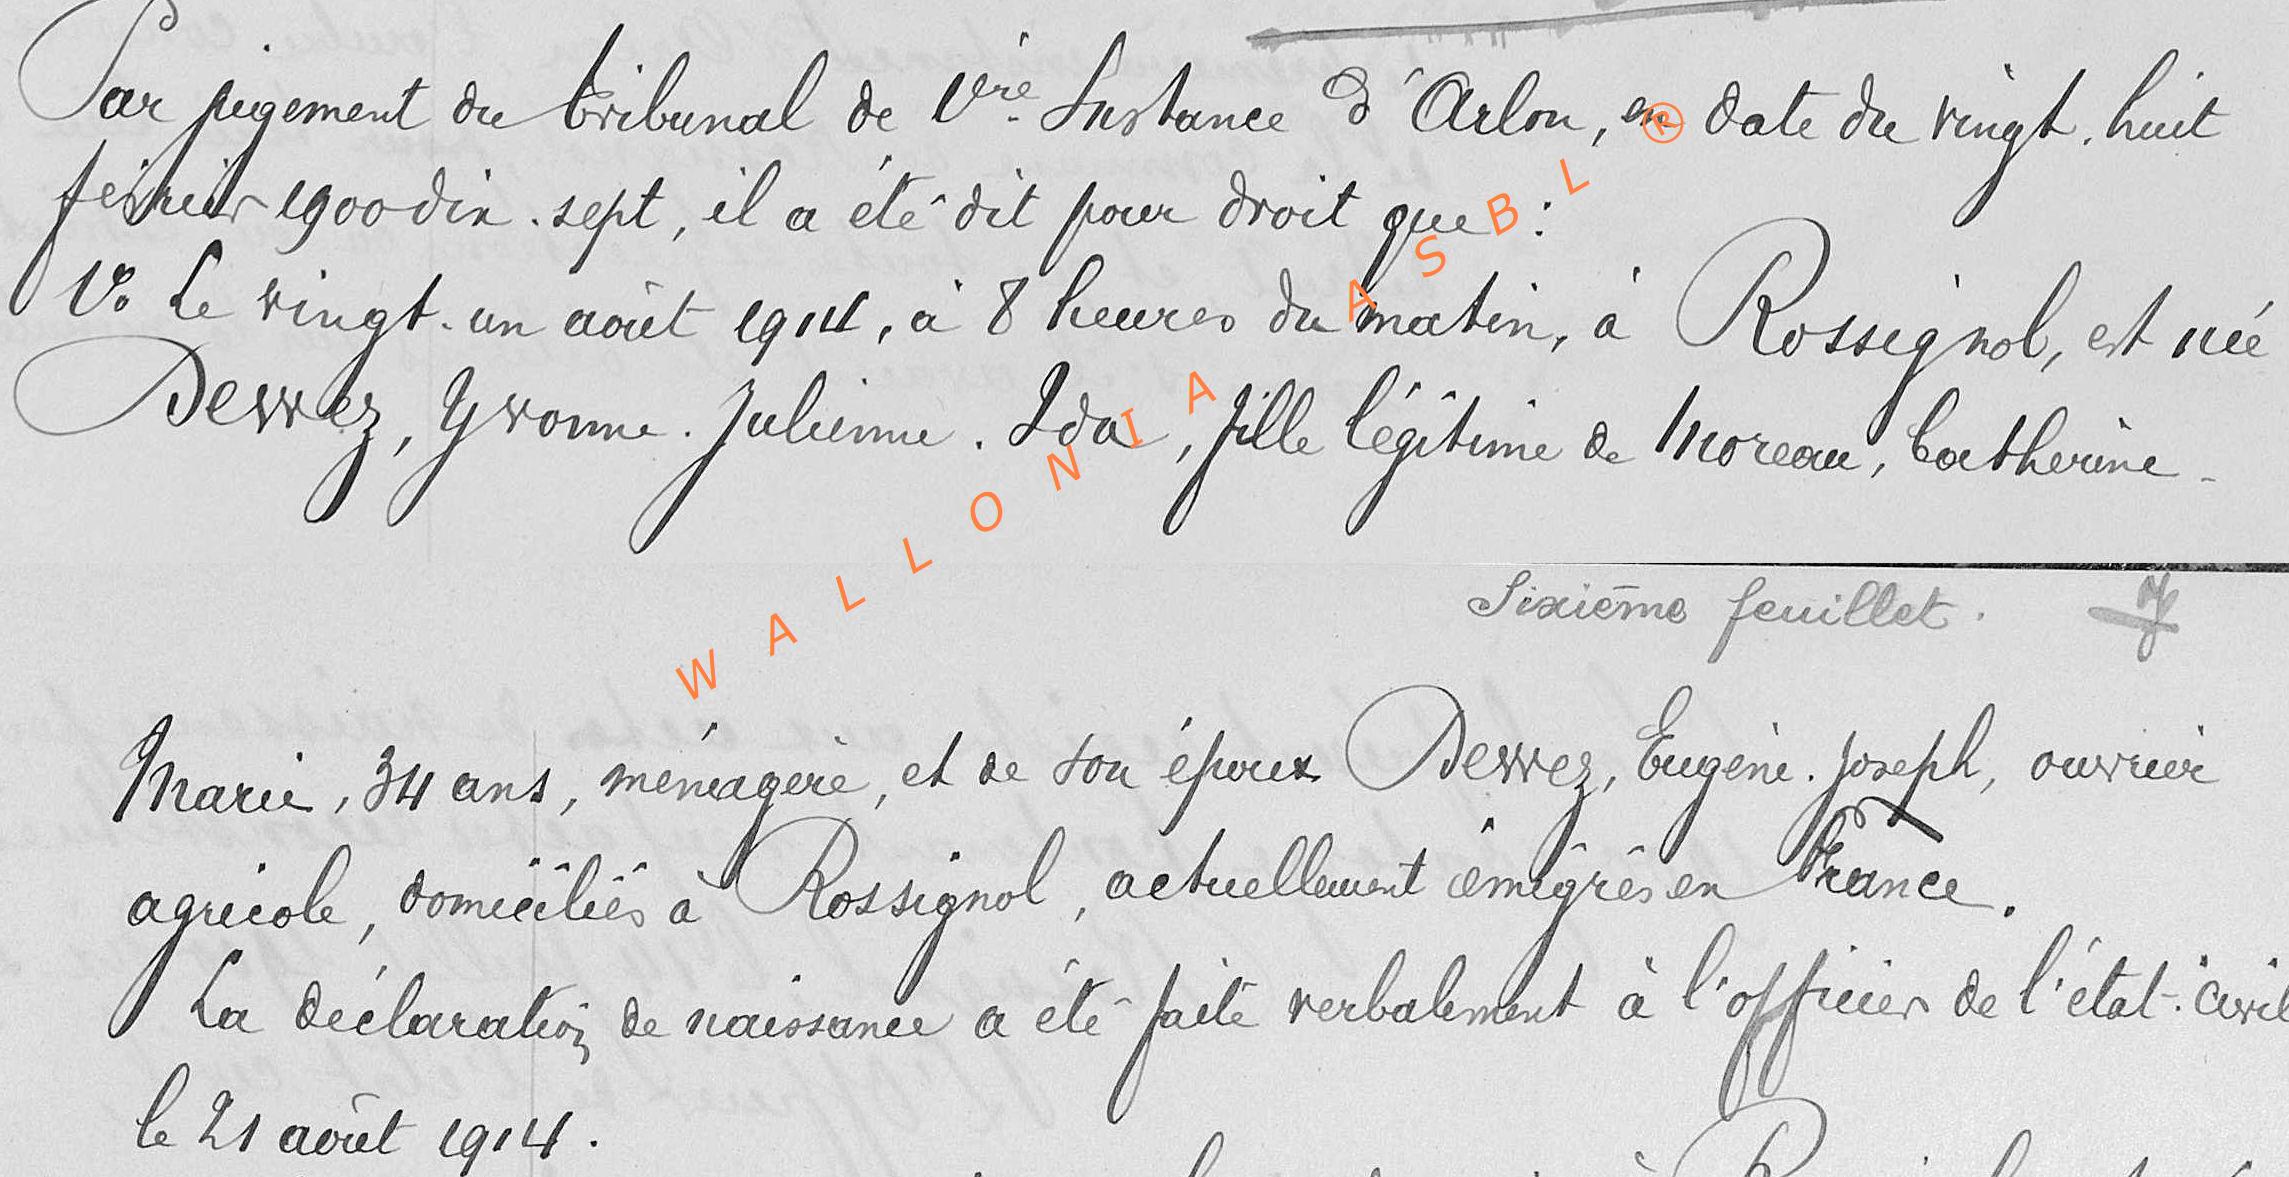 Par jugement du tribunal de 1ère Instance d'Arlon, en date du vingt-huit
février 1900 dix-sept, il a été dit pour droit que :
1° Le vingt-un août 1914, à 8 heures du matin, à Rossignol, est née
Dewez, Yvonne-Julienne-Ida, fille légitime de Moreau, Catherine-
WALLONIA ASBL ®
Sixième feuillet. 7
Marie, 34 ans, ménagère, et de son époux Dewez, Eugène-Joseph, ouvrier
agricole, domiciliés à Rossignol, actuellement émigrés en France.
La déclaration de naissance a été faite verbalement à l'officier de l'état-civil
le 21 août 1914.